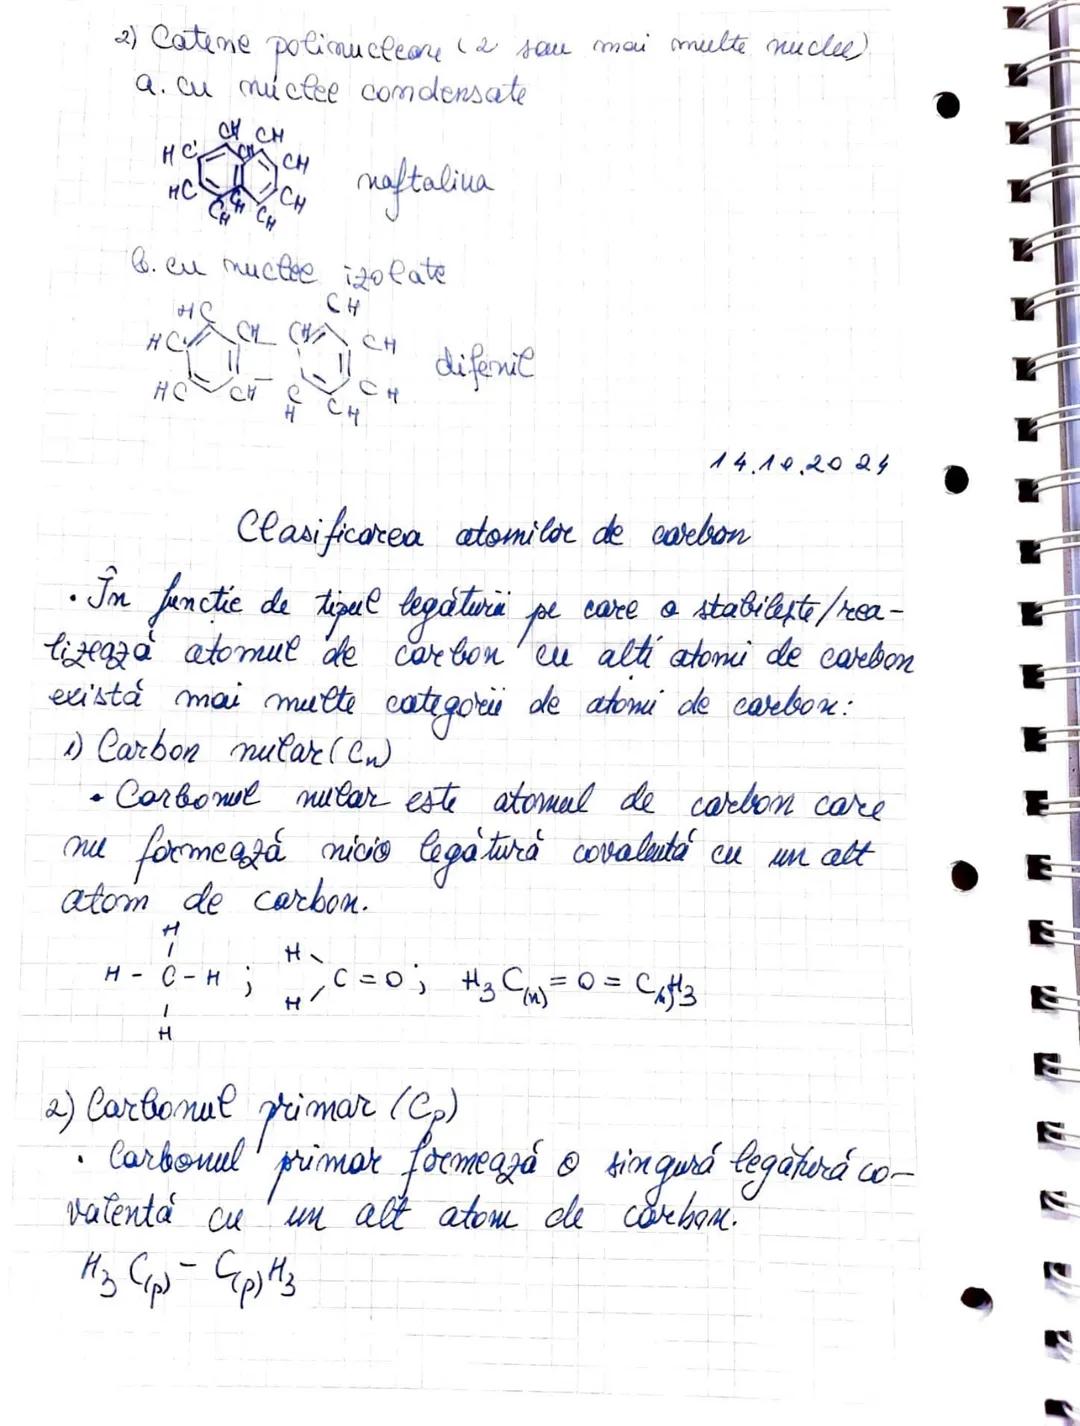 2) Catene polinucleare (2 sau mai multe nuclee)
a. cu nuclee condensate
CH CH
HC CH CH
naftalina
HC CH CH
CH CH
b. cu nuclee izolate
HC CH
HC CH CH CH
difenil
HC CH CH CH
CH
14.10.2024
Clasificarea atomilor de carbon
• În functie de tipul legăturii pe care o stabilește/rea-
lizează atomul de carbon cu alti atomi de carbon
există mai multe categorii de atomi de carbon:
1) Carbon nular (Cn)
• Carbonul nular este atomul de carbon care
nu formează nicio legătură covalentă cu un alt
atom de carbon.
H
H - C - H ; H H C = O ; H3 C(n) = O = C(n)H3
H
2) Carbonul primar (Cp)
• Carbonul primar formează o singură legătură co-
valentă cu un alt atom de carbon.
H3 C(p) - C(p) H3